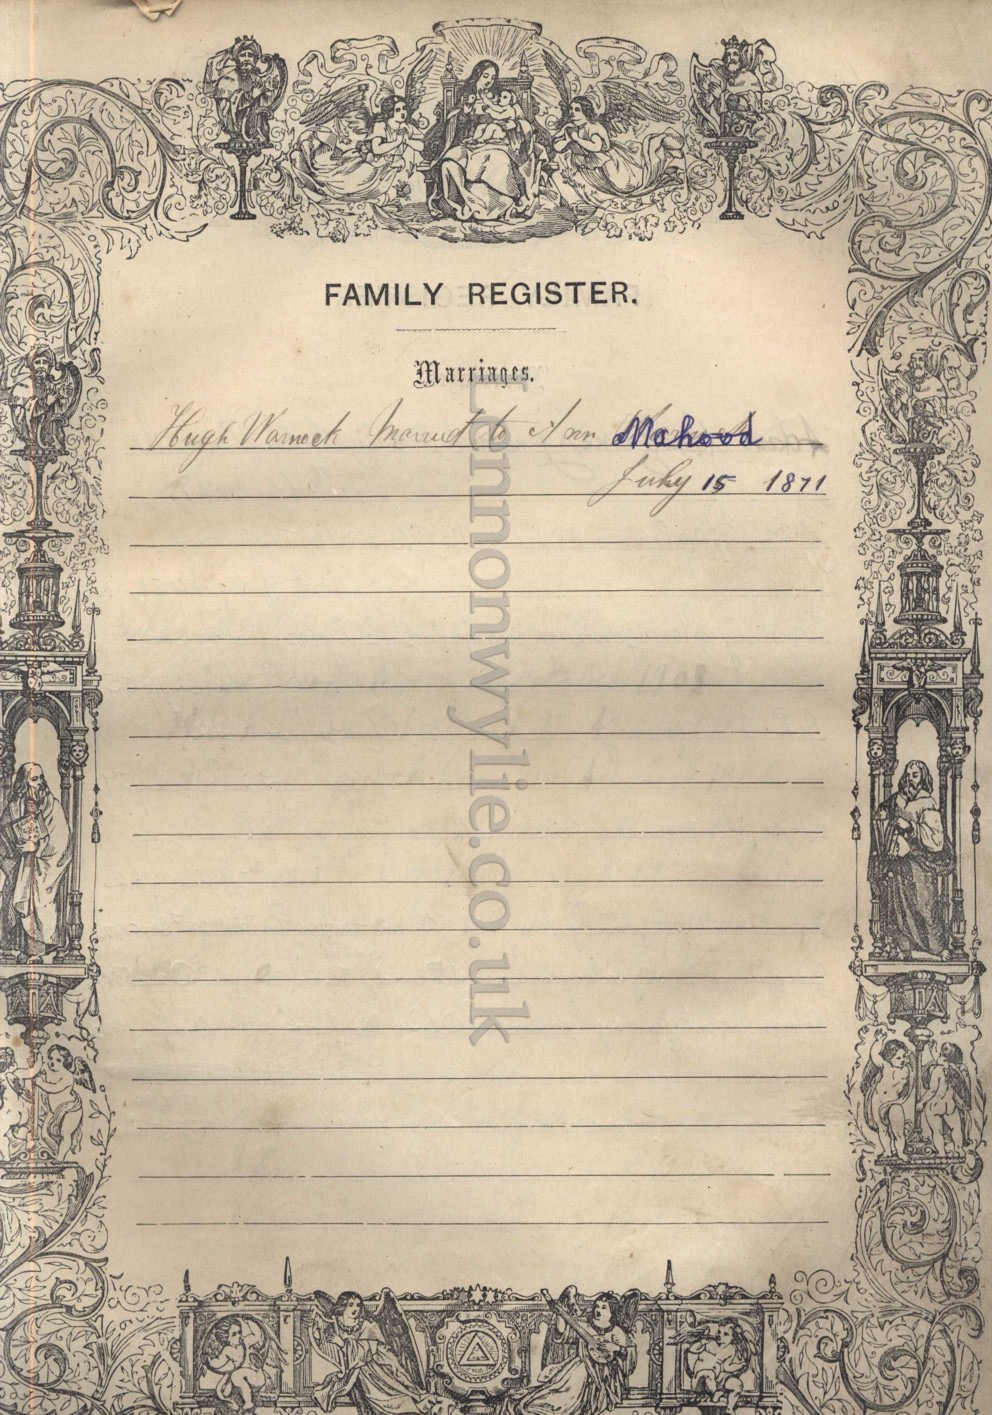 FAMILY REGISTER.
Marriages.
Hugh Warnock Married to Ann Mahood
July 15 1871
Lennonwylie.co.uk